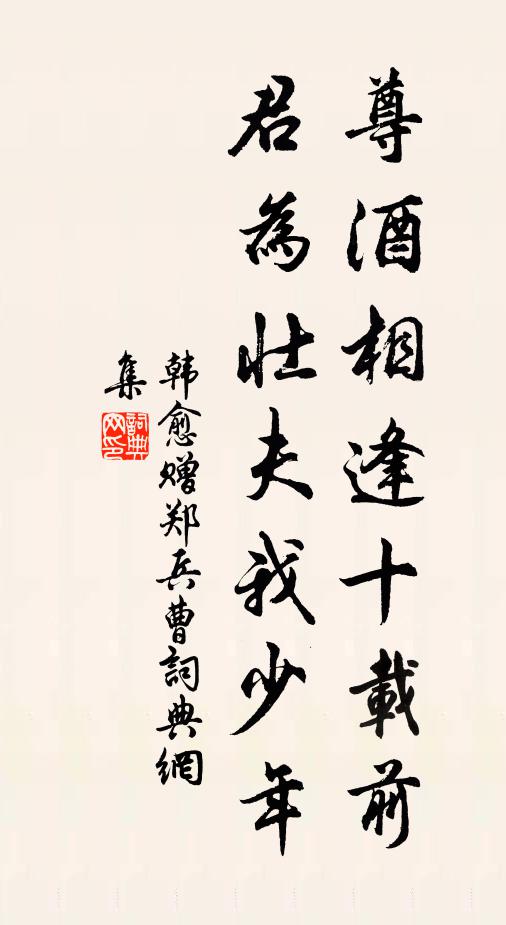 尊酒相逢十載前
君為壯夫我少年
韩愈赠郑兵曹詞典網
集
詞典
网印